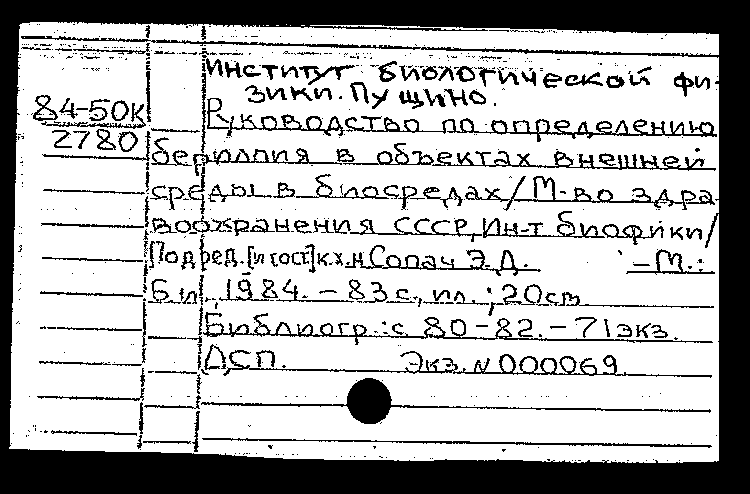 Институт биологической фи-
зики. Пущино.
84-50к
2780
Руководство по определению
бериллия в объектах внешней
среды в биосредах/М-во здра
воохранения СССР, Ин-т биофики/
Под ред. [и сост] к.х.н Сопач Э.Д. -М.:
Б.и, 1984. - 83 с., ил.; 20см
Библиогр.: с 80-82. - 71 экз.
ДСП. Экз. N 000069.